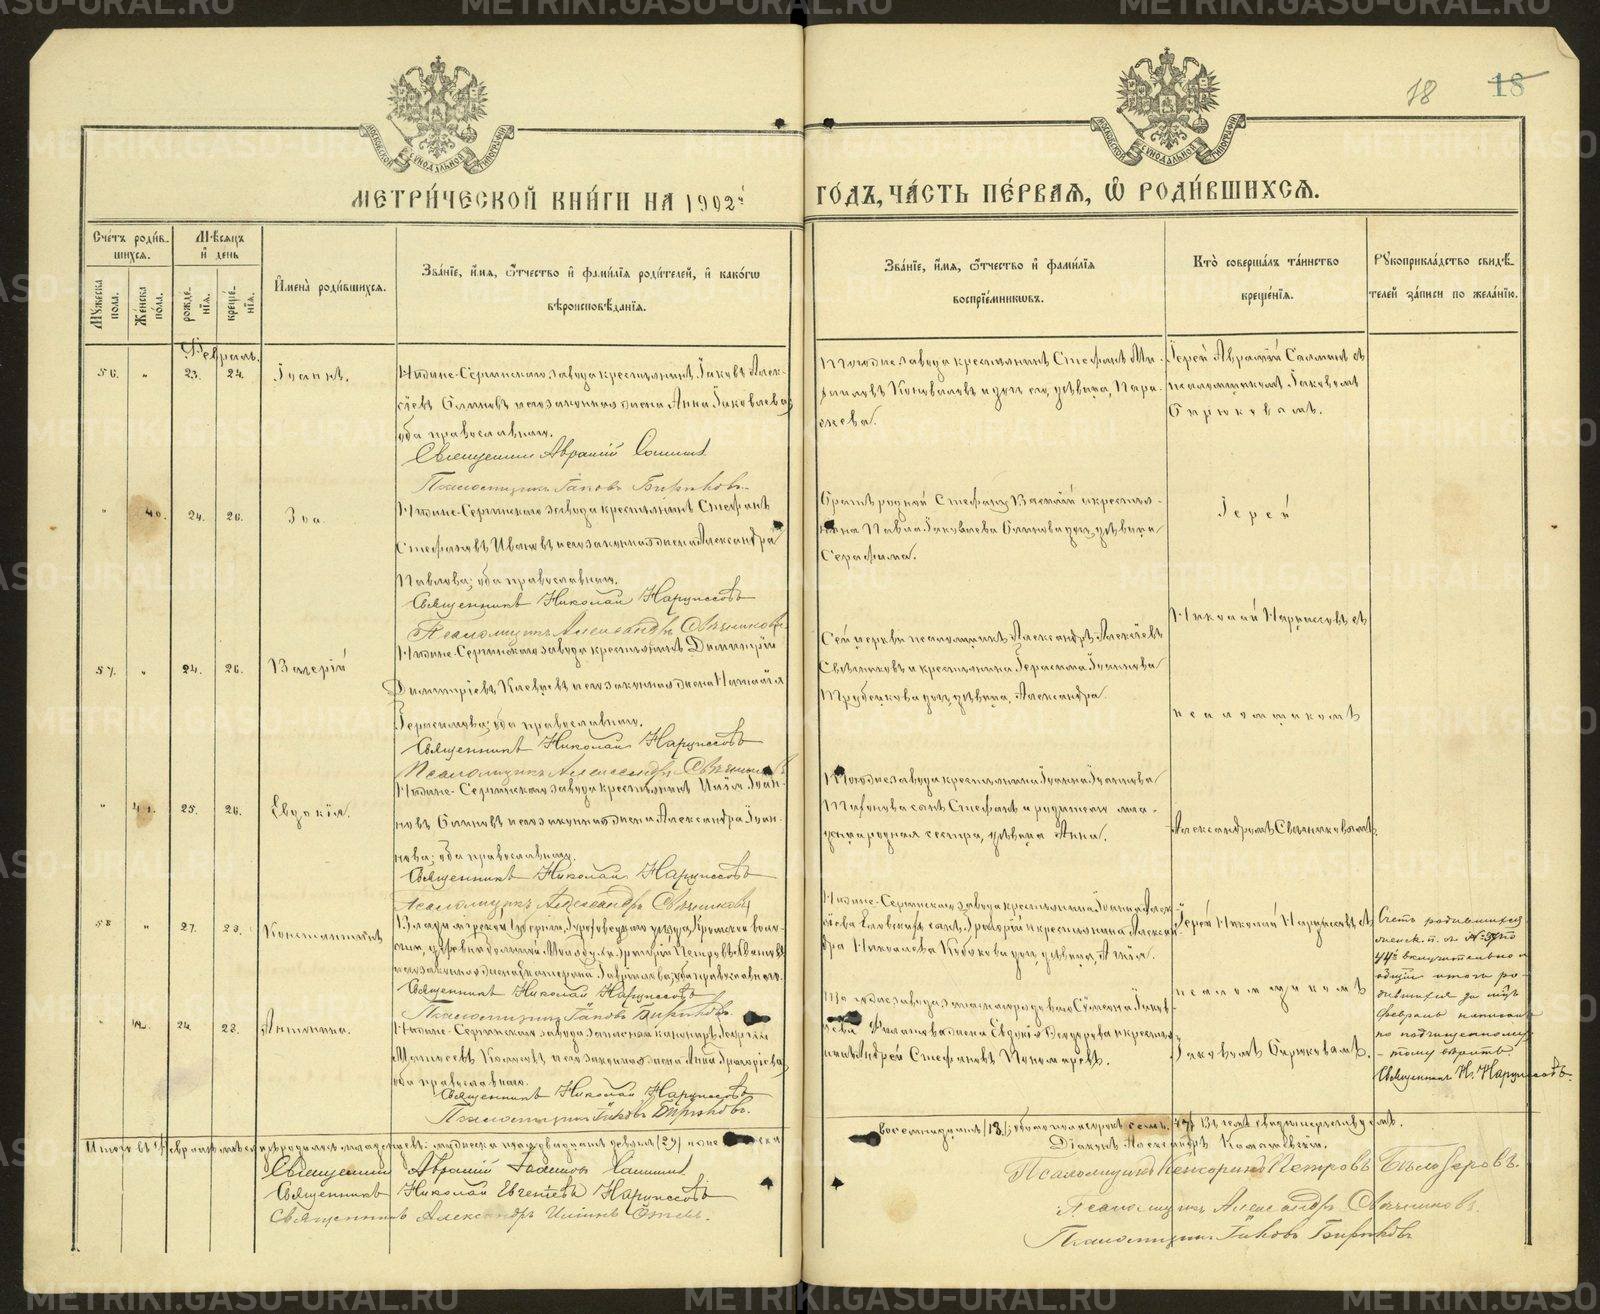 18 18
МОСКОВСКОЙ СѴНОДАЛЬНОЙ ТИПОГРАФІИ
МОСКОВСКОЙ СѴНОДАЛЬНОЙ ТИПОГРАФІИ
МЕТРИ́ЧЕСКОЙ КНИ́ГИ НА 1902й ГО́ДЪ, ЧА́СТЬ ПЕ́РВАЯ, Ѡ҆ РОДИ́ВШИХСЯ.
Сче́тъ роди́в-
шихся.
Мѣ́сяцъ
и҆ день
Му́жеска
пола.
Же́нска
пола.
рожде-
нїя.
креще́-
нїя.
И҆мена̀ роди́вшихся.
Зва́нїе, и҆́мя, ѻ҆́тчество и҆ фами́лїя роди́телей, и҆ како́гѡ
вѣроисповѣ́данїя.
Зва́нїе, и҆́мя, ѻ҆́тчество и҆ фами́лїя
воспрїе́мникѡвъ.
Кто̀ соверша́лъ та́инство
креще́нїя.
Рꙋкоприкла́дство свидѣ́-
телей за́писи по жела́нїю.
Февраль.
56. " 23. 24. Іоаннъ.
Нижне-Сергинскаго завода крестьянинъ Іаковъ Алек-
сіевъ и законная жена Анна Іаковлева
оба православные.
Священникъ Аврамій
Псаломщикъ Іаковъ Бирюковъ.
Того же завода крестьянинъ Стефанъ Ми-
хаиловъ Коноваловъ и дочь его, дѣвица, Пара-
скева.
Іерей Аврамій съ
псаломщикомъ Іаковомъ
Бирюковымъ.
" 40. 24. 26. Зоа.
Нижне-Сергинскаго завода крестьянинъ Стефанъ
Стефановъ Ивановъ и законная жена Александра
Павлова; оба православные.
Священникъ Николай Нарциссовъ
Псаломщикъ Александръ Свѣчниковъ
Братъ родной Стефану Василій и крестья-
нина Павла Іаковлева дочь, дѣвица
Серафима.
Іерей
57. " 24. 26. Валерій
Нижне-Сергинскаго завода крестьянинъ Димитрій
Димитріевъ и законная жена Наталія
Герасимова; оба православные.
Священникъ Николай Нарциссовъ
Псаломщикъ Александръ Свѣчниковъ
Сей церкви псаломщикъ Александръ Алексіевъ
Свѣчниковъ и крестьянина Герасима Іоаннова
Трубецкова дочь, дѣвица, Александра.
Николай Нарциссовъ съ
псаломщикомъ
" 41. 25. 26. Евдокія.
Нижне-Сергинскаго завода крестьянинъ Илія Іоан-
новъ и законная жена Александра Іоан-
нова; оба православные.
Священникъ Николай Нарциссовъ
Псаломщикъ Александръ Свѣчниковъ
Того же завода крестьянина Іоанна Іоаннова
сынъ Стефанъ и родителю мла-
денца родная сестра, дѣвица Анна.
Александромъ Свѣчниковымъ.
58 " 27. 28. Константинъ
Владимірской губерніи, Гороховецкаго уѣзда, Кромской воло-
сти, Григорій Петровъ Ивановъ
и законная жена Екатерина Гавріилова; оба православные.
Священникъ Николай Нарциссовъ
Псаломщикъ Іаковъ Бирюковъ.
Нижне-Сергинскаго завода крестьянина Іоанна Алек-
сіева сынъ Григорій и крестьянина Алексан-
дра Николаева дочь, дѣвица,
Іерей Николай Нарциссовъ съ
псаломщикомъ
Счетъ родившихся
женск. п. съ № 37 по
44 включительно и
общій итогъ ро-
дившихся за м-цъ
февраль написанъ
по подчищенному
– тому вѣрить.
Священникъ Н. Нарциссовъ.
42. 24. 28. Антонина.
Нижне-Сергинскаго завода запасной канониръ Георгій
Матѳеевъ и законная жена Анна Григоріева
оба православные.
Священникъ Николай Нарциссовъ
Псаломщикъ Іаковъ Бирюковъ.
Того же завода Сѵмеона Іаков-
лева Филатова жена Евдокія Ѳеодорова и крестья-
нинъ Андрей Стефановъ Пономаревъ.
Іаковомъ Бирюковымъ.
Итого въ Февралѣ мѣсяцѣ родилось младенцевъ: мужеска пола двадцать девять (29) и женска
восемнадцать (18), обоего пола сорокъ семь. 47 Въ семъ свидѣтельствуемъ.
Священникъ Аврамій
Священникъ Николай Евгеніевъ Нарциссовъ
Священникъ Александръ
Діаконъ Александръ
Псаломщикъ Кенсоринъ Петровъ Бѣлозеровъ.
Псаломщикъ Александръ Свѣчниковъ.
Псаломщикъ Іаковъ Бирюковъ
METRIKI.GASO-URAL.RU